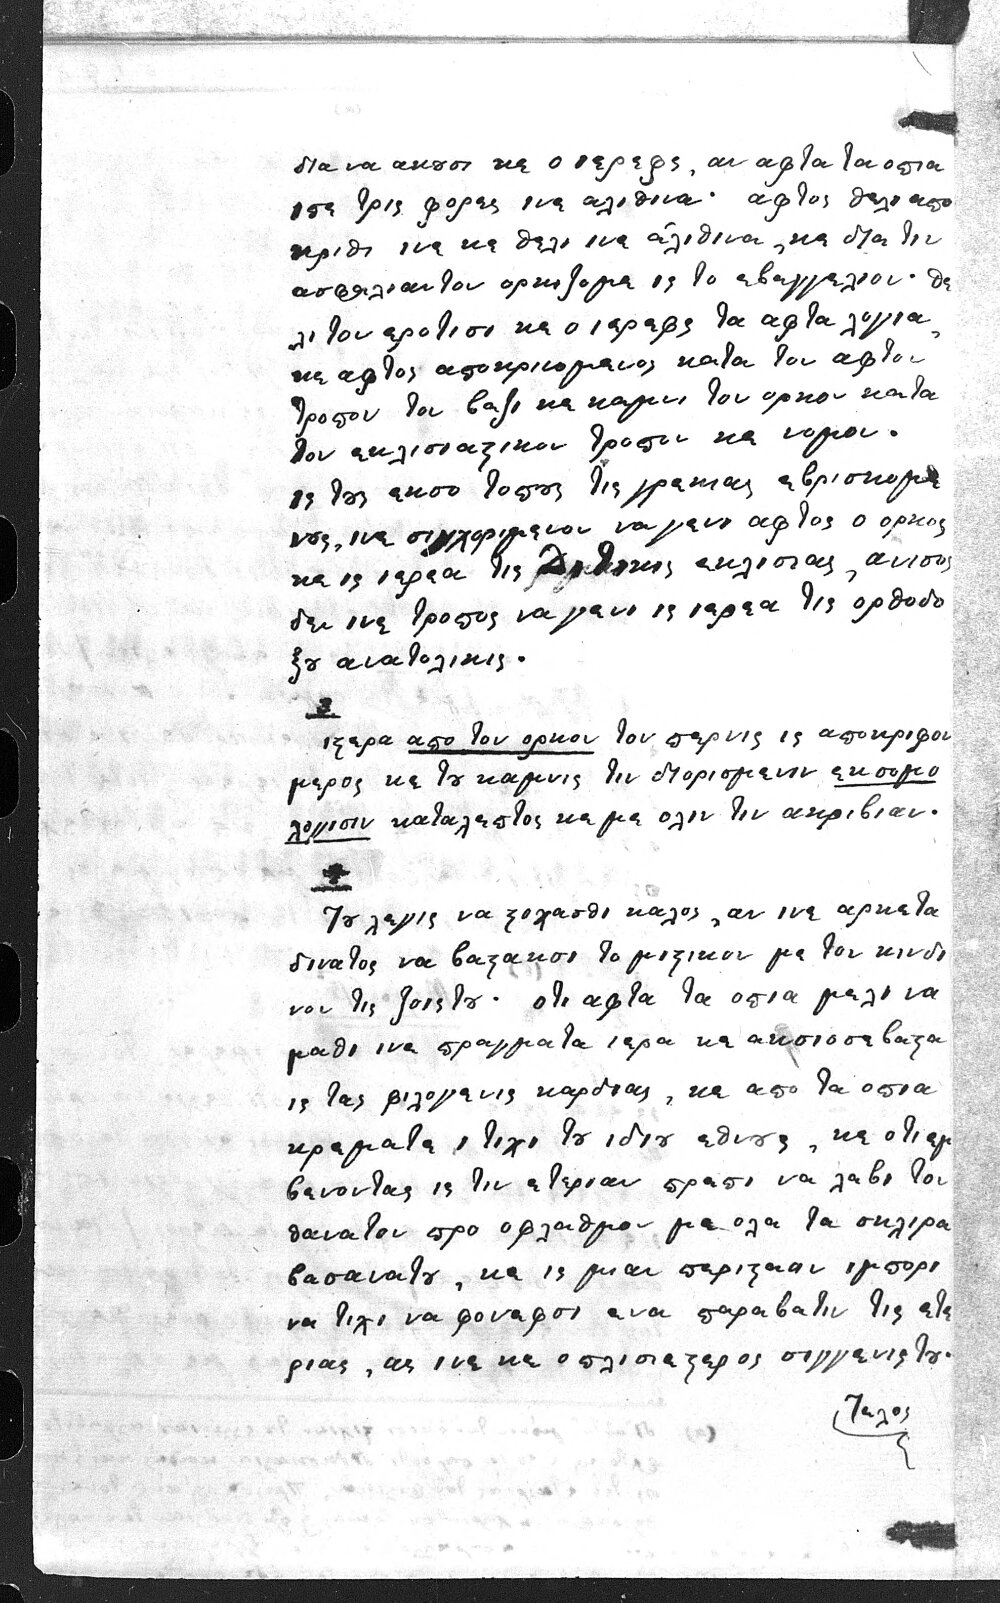 δια να ακουσι κε ο ιερεφς, αν αφτα τα οπια
ιπε τρις φορες ινε αλιθινα· αφτος θελι απο
κριθι ινε κε θελι ινε αλιθινα, κε δια τιν
ασφαλιαν τον ορκιζομε ις το εβαγγελιον· θε
λι τον εροτισι κε ο ιερεφς τα αφτα λογια,
κε αφτος αποκρινομενος κατα τον αφτον
τροπον τον βαζι κε καμνι τον ορκον κατα
τον εκλισιαστικον τροπον κε νομον.
ις τους εκσο τοπους τις γρεκιας εβρισκομε
νους, ινε συγχοριμενον να γενι αφτος ο ορκος
κε ις ιερεα τις Διτικις εκλισιας, ανισος
δεν ινε τροπος να γενι ις ιερεα τις ορθοδο
ξου ανατολικις.
3
ιστερα απο τον ορκον τον περνις ις αποκριφον
μερος κε του καμνις τιν διορισμενιν εκσομο
λογισιν καταλεπτος κε με ολιν τιν ακριβιαν.
4
Του λεγις να στοχασθι καλος, αν ινε αρκετα
δινατος να βαστακσι το μιστικον με τον κινδι
νον τις ζοις του· οτι αφτα τα οπια μελι να
μαθι ινε πραγματα ιερα κε ακσιοσεβαστα
ις τας φιλογενις καρδιας, κε απο τα οπια
κρεματε ι τιχι του ιδιου εθνους, κε οτι εμ
βενοντας ις τιν ετεριαν πρεπι να λαβι τον
θανατον προ οφλαθμον με ολα τα σκλιρα
βασανα του, κε ις μιαν περιστασιν ιμπορι
να τιχι να φονεφσι ενα παραβατιν τις ετε
ριας, ας ινε κε ο πλισιεστερος συγγενις του.
Τελος